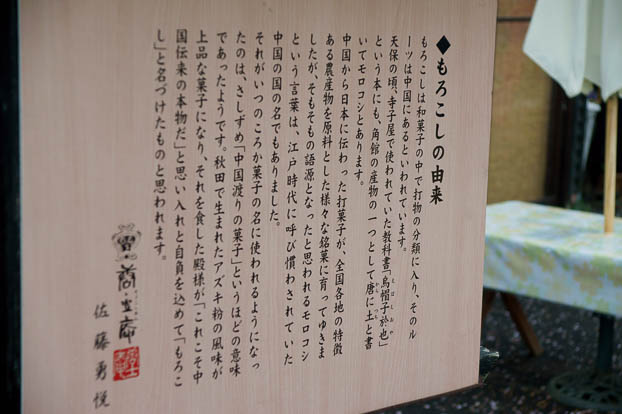 ◆もろこしの由来
もろこしは和菓子の中で打物の分類に入り、そのル
ーツは中国にあるといわれています。
天保の頃、寺子屋で使われていた教科書「烏帽子於也」
という本にも、角館の産物の一つとして唐に土と書
いてモロコシとあります。
中国から日本に伝わった打菓子が、全国各地の特徴
ある農産物を原料とした様々な銘菓に育ってゆきま
したが、そもそもの語源となったと思われるモロコシ
という言葉は、江戸時代に呼び慣わされていた
中国の国の名でもありました。
それがいつのころか菓子の名に使われるようになっ
たのは、さしずめ「中国渡りの菓子」というほどの意味
であったようです。秋田で生まれたアズキ粉の風味が
上品な菓子になり、それを食した殿様が「これこそ中
国伝来の本物だ」と思い入れと自負を込めて「もろこ
し」と名づけたものと思われます。
佐藤勇悦